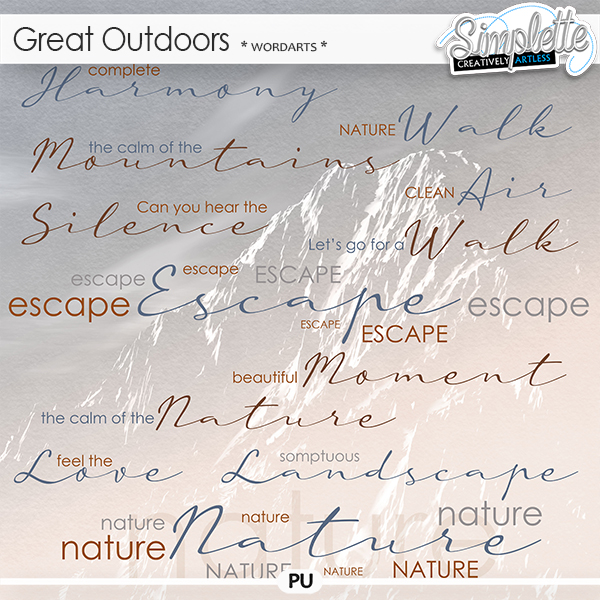 Great Outdoors * WORDARTS *
Simplette
CREATIVELY ARTLESS
complete
Harmony
NATURE Walk
the calm of the
Mountains
CLEAN Air
Can you hear the
Silence
Let's go for a Walk
escape escape ESCAPE
escape Escape escape
ESCAPE ESCAPE
beautiful Moment
the calm of the Nature
feel the
Love
somptuous
Landscape
nature
nature nature nature
nature Nature
NATURE NATURE NATURE
PU